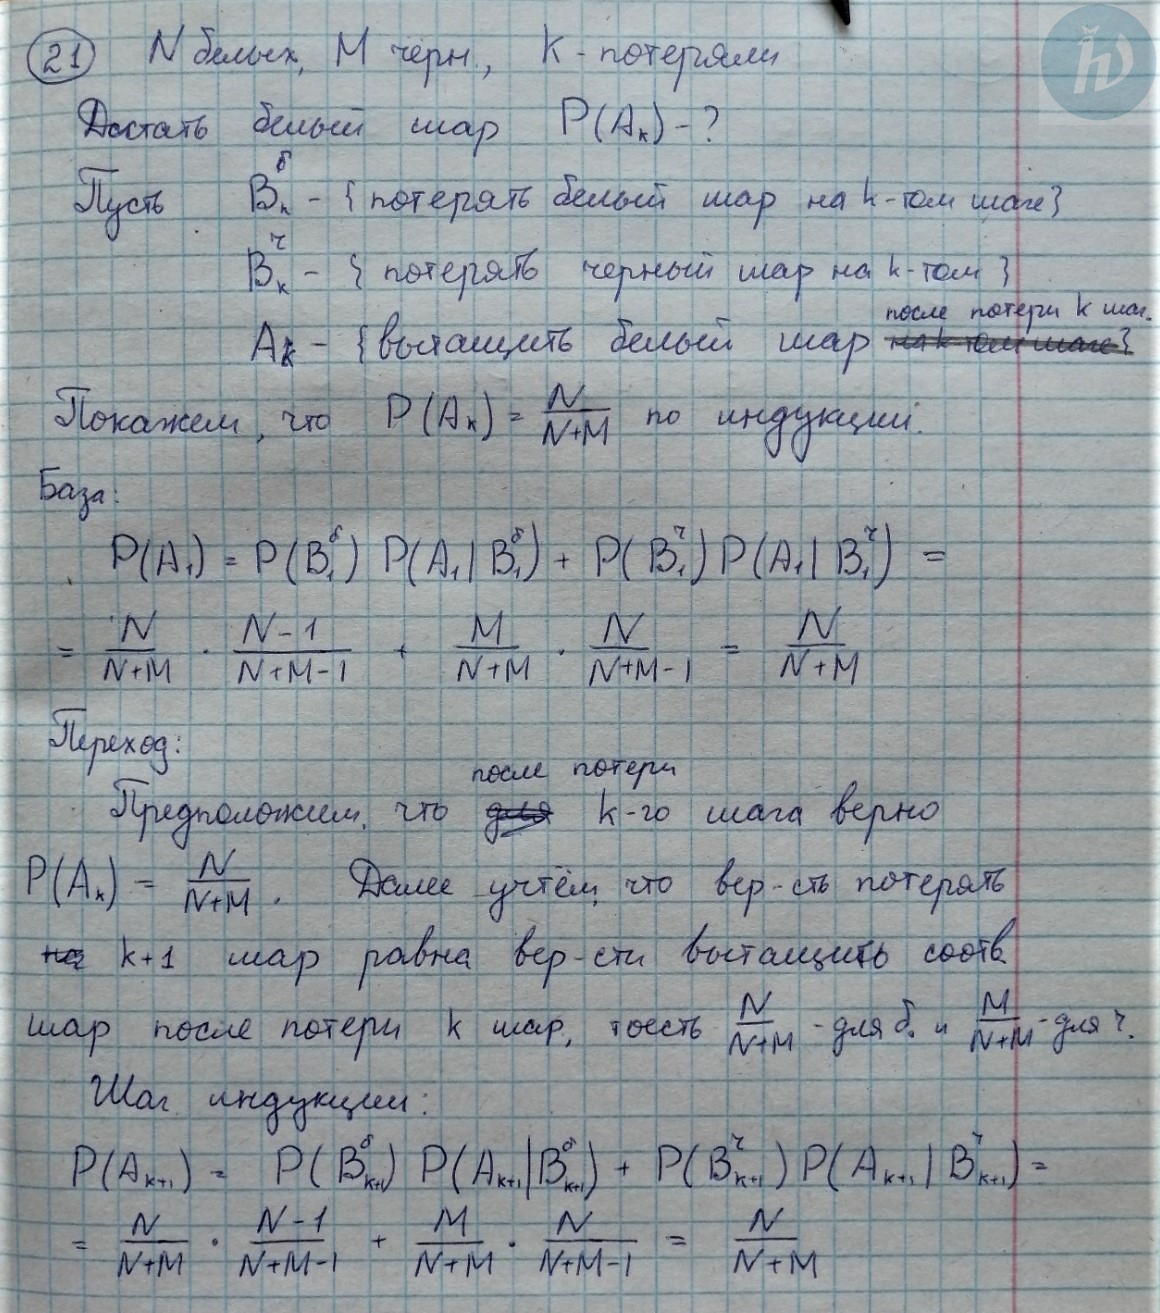 21 N белых, M черн., K - потеряли
Достать белый шар P(Aₖ) - ?
Пусть Bₖᵟ - { потерять белый шар на k-том шаге}
Bₖ^ч - { потерять черный шар на k-том }
Aₖ - {вытащить белый шар после потери k шаг. на k-том шаге}
Покажем, что P(Aₖ) = N/(N+M) по индукции.
База:
P(A₁) = P(B₁^б) P(A₁ | B₁^б) + P(B₁^ч) P(A₁ | B₁^ч) =
= N/(N+M) · (N-1)/(N+M-1) + M/(N+M) · N/(N+M-1) = N/(N+M)
Переход:
после потери
Предположим, что для k-го шага верно
P(Aₖ) = N/(N+M). Далее учтём, что вер-сть потерять
на k+1 шар равна вер-сти вытащить соотв.
шар после потери k шар, тоесть N/(N+M) - для б. и M/(N+M) - для ч.
Шаг индукции:
P(Aₖ₊₁) = P(Bₖ₊₁^б) P(Aₖ₊₁ | Bₖ₊₁^б) + P(Bₖ₊₁^ч) P(Aₖ₊₁ | Bₖ₊₁^ч) =
= N/(N+M) · (N-1)/(N+M-1) + M/(N+M) · N/(N+M-1) = N/(N+M)